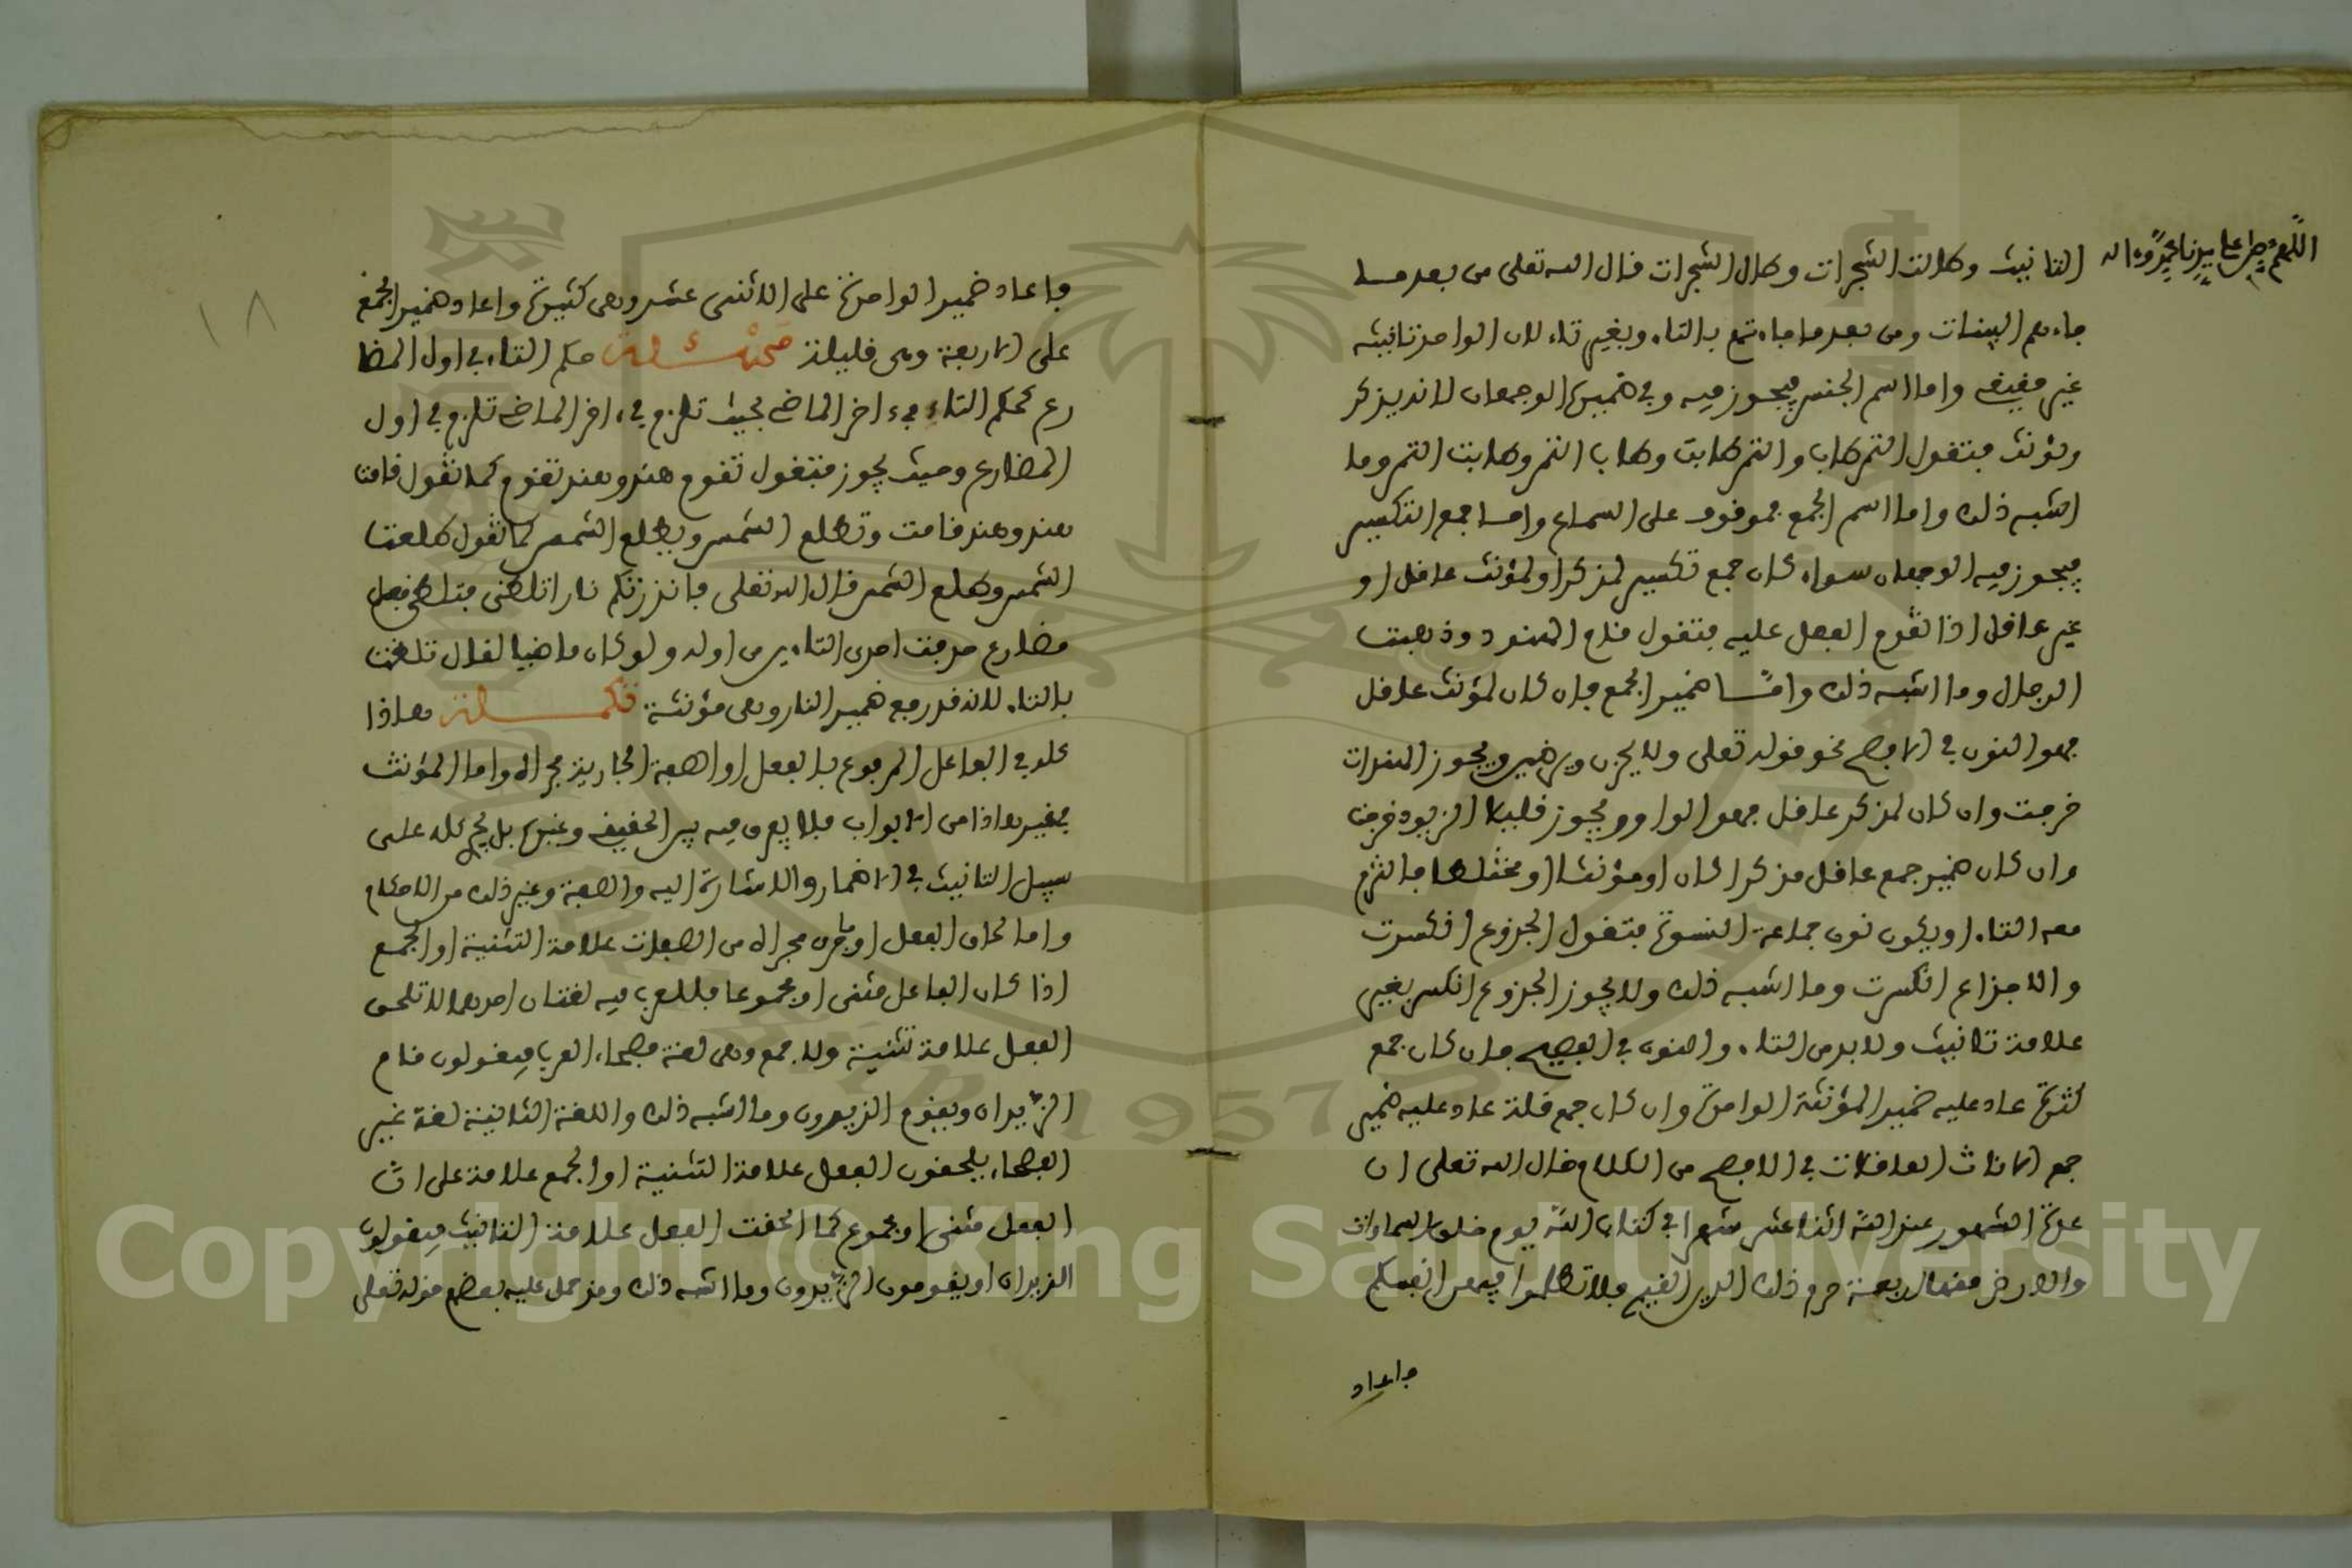 اللهم صل على سيدنا محمد وءاله
التانيث وطالت الشجرات وطال الشجرات قال الله تعلى من بعد ما
جاءهم البينات ومن بعد ما جاءتهم بالتاء وبغير تاء لان الواحد تانيثه
غير حقيقي واما اسم الجنس فيجوز فيه وفي ضميره الوجهان لانه يذكر
ويؤنث فتقول التمر طاب والتمر طابت وطاب التمر وطابت التمر وما
اشبه ذلك واما اسم الجمع فموقوف على السماع واما جمع التكسير
فيجوز فيه الوجهان سواء كان جمع تكسير لمذكر او لمؤنث عاقل او
غير عاقل اذا تقدم الفعل عليه فتقول قام الهنود وذهبت
الرجال وما اشبه ذلك واما ضمير الجمع فان كان لمؤنث عاقل
فهو النون في الافصح نحو قوله تعلى ولا يحزن ويرضين ويجوز الهندات
خرجت وان كان لمذكر عاقل فهو الواو ويجوز قليلا الزيود خرجت
وان كان ضمير جمع عاقل مذكرا كان او مؤنثا او مختلطا فالتزم
معه التاء او يكون نون جماعة النسوة فتقول الجذوع انكسرت
والاجذاع انكسرت وما اشبه ذلك ولا يجوز الجذوع انكسر بغير
علامة تانيث ولا بد من التاء والنون في الفصيح فان كان جمع
كثرة عاد عليه ضمير المؤنثة الواحدة وان كان جمع قلة عاد عليه ضمير
جمع الاناث العاقلات في الافصح من الكلام قال الله تعلى ان
عدة الشهور عند الله اثنا عشر شهرا في كتاب الله يوم خلق السماوات
والارض منها اربعة حرم ذلك الدين القيم فلا تظلموا فيهن انفسكم
فاعاد
١٨
فاعاد ضمير الواحدة على الاثنى عشر وهي كثيرة واعاد ضمير الجمع
على الاربعة وهي قليلة مسئلة حكم التاء في اول المضا
رع كحكم التاء في ءاخر الماضي بحيث تلزم في ءاخر الماضي تلزم في اول
المضارع وحيث يجوز فتقول تقوم هند وهند تقوم كما تقول قامت
هند وهند قامت وتطلع الشمس ويطلع الشمس كما تقول طلعت
الشمس وطلع الشمس قال الله تعلى فانذرتكم نارا تلظى فتلظى فعل
مضارع حذفت احدى التاءين من اوله ولو كان ماضيا لقال تلظت
بالتاء لانه قد رفع ضمير النار وهي مؤنثة تكملة هاذا
كله في الفاعل المرفوع بالفعل او الصفة الجارية مجراه واما المؤنث
في غير هاذا من الابواب فلا يفرق فيه بين الحقيقي وغيره بل يجي كله على
سبيل التانيث في الاضمار والاشارة اليه والصفة وغير ذلك من الاحكام
واما لحاق الفعل او ما جرى مجراه من الصفات علامة التثنية او الجمع
اذا كان الفاعل مثنى او مجموعا فللعرب فيه لغتان احدهما لا تلحق
الفعل علامة تثنية ولا جمع وهي لغة فصحاء العرب فيقولون قام
الزيدان ويقوم الزيدون وما اشبه ذلك واللغة الثانية لغة غير
الفصحاء يلحقون الفعل علامة التثنية او الجمع علامة على ان
الفعل مثنى او مجموع كما الحقت الفعل علامة التانيث فيقولون
الزيدان او يقومون الزيدون وما اشبه ذلك وقد حمل عليه بعضهم قوله تعلى
Copyright © King Saud University
1957